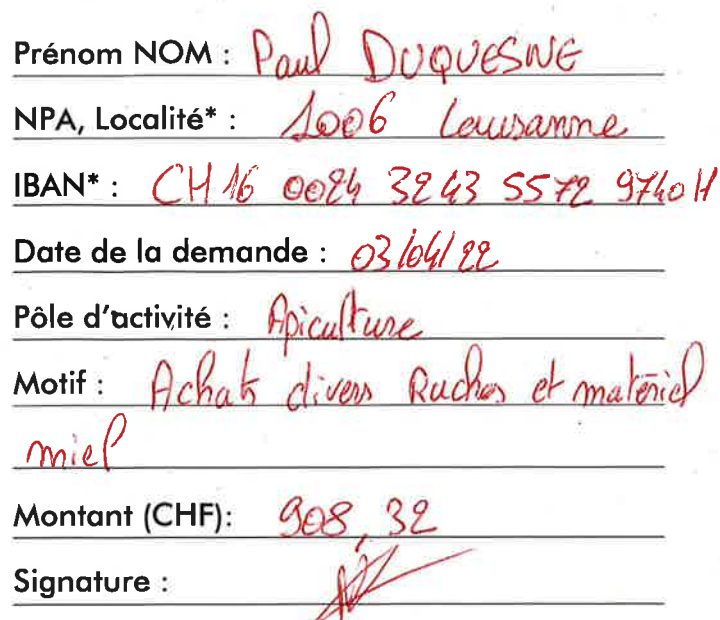 Prénom NOM : Paul DUQUESNE
NPA, Localité* : 1006 Lausanne
IBAN* : CH 16 0024 3243 5572 9740 H
Date de la demande : 03/04/22
Pôle d'activité : Apiculture
Motif : Achats divers Ruches et matériel
miel
Montant (CHF): 908,32
Signature :